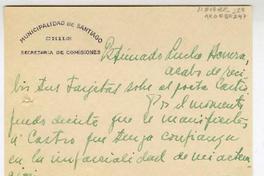 MUNICIPALIDAD DE SANTIAGO
CHILE
SECRETARIA DE COMISIONES
Estimado Lucho Herrera,
acabo de reci
bir sus tarjetas sobre el poeta Castro
Por el momento
puedo decirle que le manifieste
a Castro que tenga confianza
en la imparcialidad de mi actua